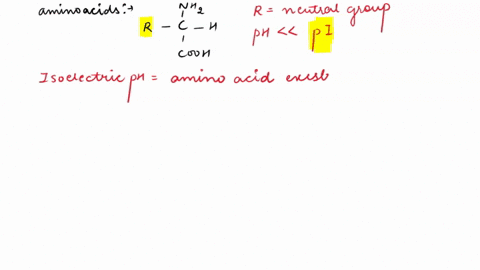 aminoacids:→
NH2
R - C - H
COOH
R = neutral group
pH << pI
Isoelectric pH = amino acid exist